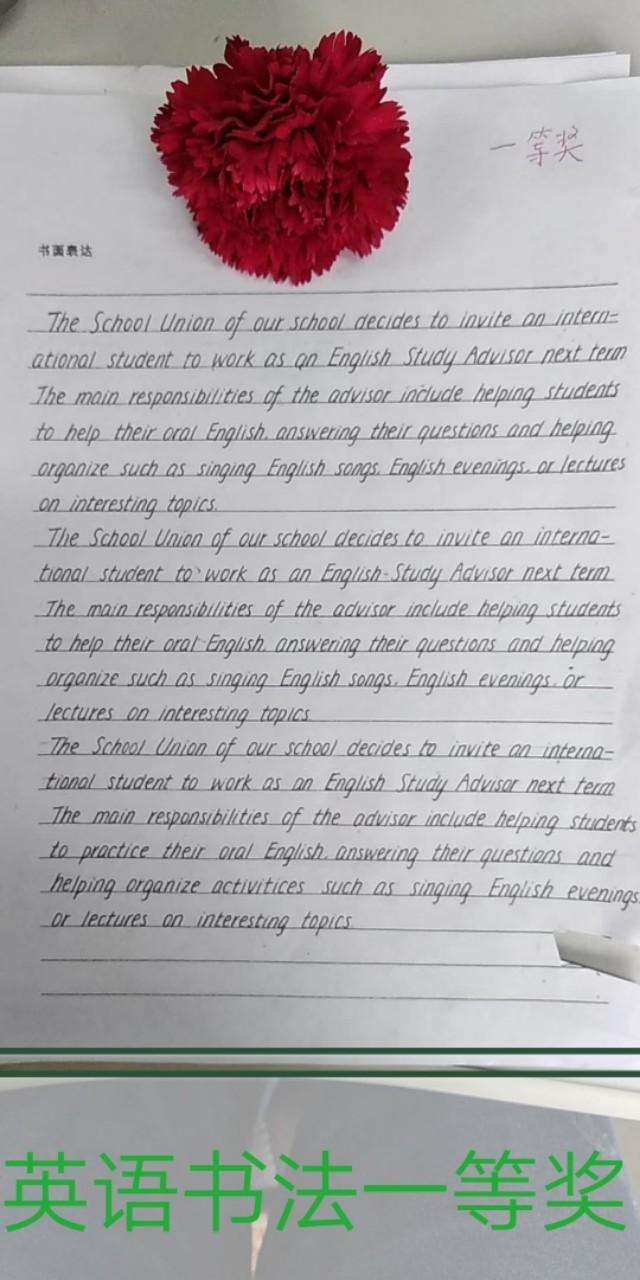 一等奖
书面表达
The School Union of our school decides to invite an intern-
ational student to work as an English Study Advisor next term
The main responsibilities of the advisor include helping students
to help their oral English, answering their questions and helping
organize such as singing English songs, English evenings, or lectures
on interesting topics.
The School Union of our school decides to invite an interna-
tional student to work as an English-Study Advisor next term
The main responsibilities of the advisor include helping students
to help their oral English, answering their questions and helping
organize such as singing English songs, English evenings, or
lectures on interesting topics.
The School Union of our school decides to invite an interna-
tional student to work as an English Study Advisor next term
The main responsibilities of the advisor include helping students
to practice their oral English, answering their questions and
helping organize activitices such as singing English evenings,
or lectures on interesting topics.
英语书法一等奖